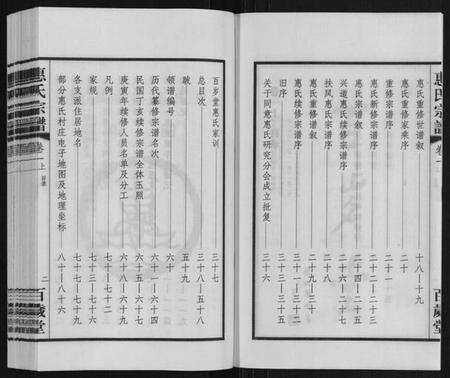 惠氏宗譜 卷一
百歲堂
惠氏重修世譜叙 十八—十九
惠氏重修家乘序 二十
惠氏新修宗譜序 二十一
惠氏宗譜叙 二十二—二十三
兴道惠氏续修宗谱序 二十四—二十五
扶风惠氏宗谱序 二十六—二十七
惠氏重修谱叙 二十九—三十
惠氏续修宗谱序
旧序 三十三—三十五
关于同意惠氏研究分会成立批复 三十六
百岁堂惠氏家训 三十七
总目次 三十八—五十八
跋 五十九
领谱编号 六十
历代纂修宗谱名次 六十一—六十四
民国丁亥续修宗谱全体玉照 六十五—六十七
庚寅年续修人员名单及分工 六十八—六十九
凡例 七十一—七十二
家规 七十三—七十六
各支派住居地名 七十七—七十九
部分惠氏村庄电子地图及地理坐标 八十—八十六
惠氏宗譜 卷一 上
二
百歲堂